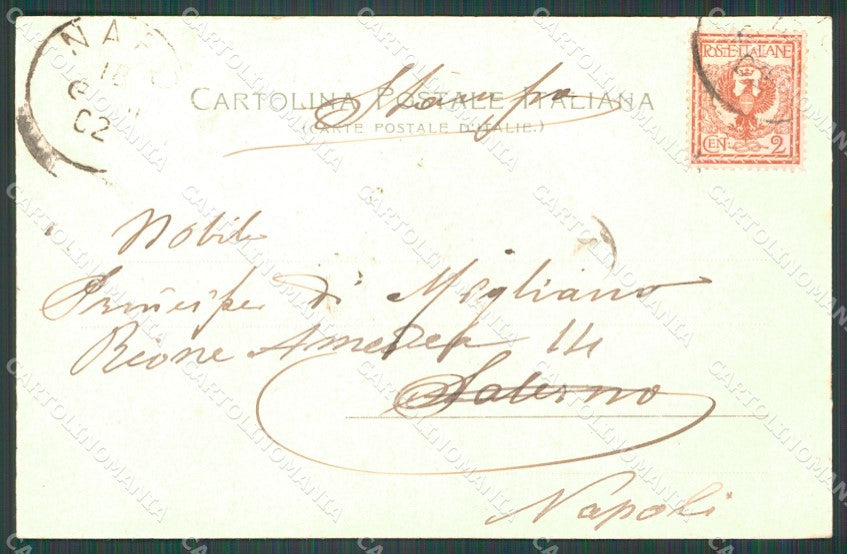 NAPO
18
02
POSTE ITALIANE
CEN. 2
CARTOLINA POSTALE ITALIANA
(CARTE POSTALE D'ITALIE.)
Stampa
Nobile
Principe di Migliano
Rione Amedeo 14
Salerno
Napoli
CARTOLINOMANIA